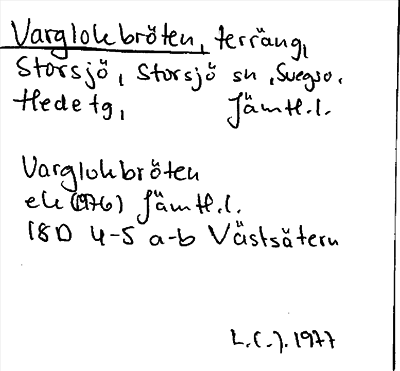 Varglokbröten, terräng,
Storsjö, Storsjö sn, Svegs o.
Hede tg, Jämtl. l.
Varglokbröten
ek (1976) Jämtl. l.
18D 4-5 a-b Västsätern
L.C.J. 1977